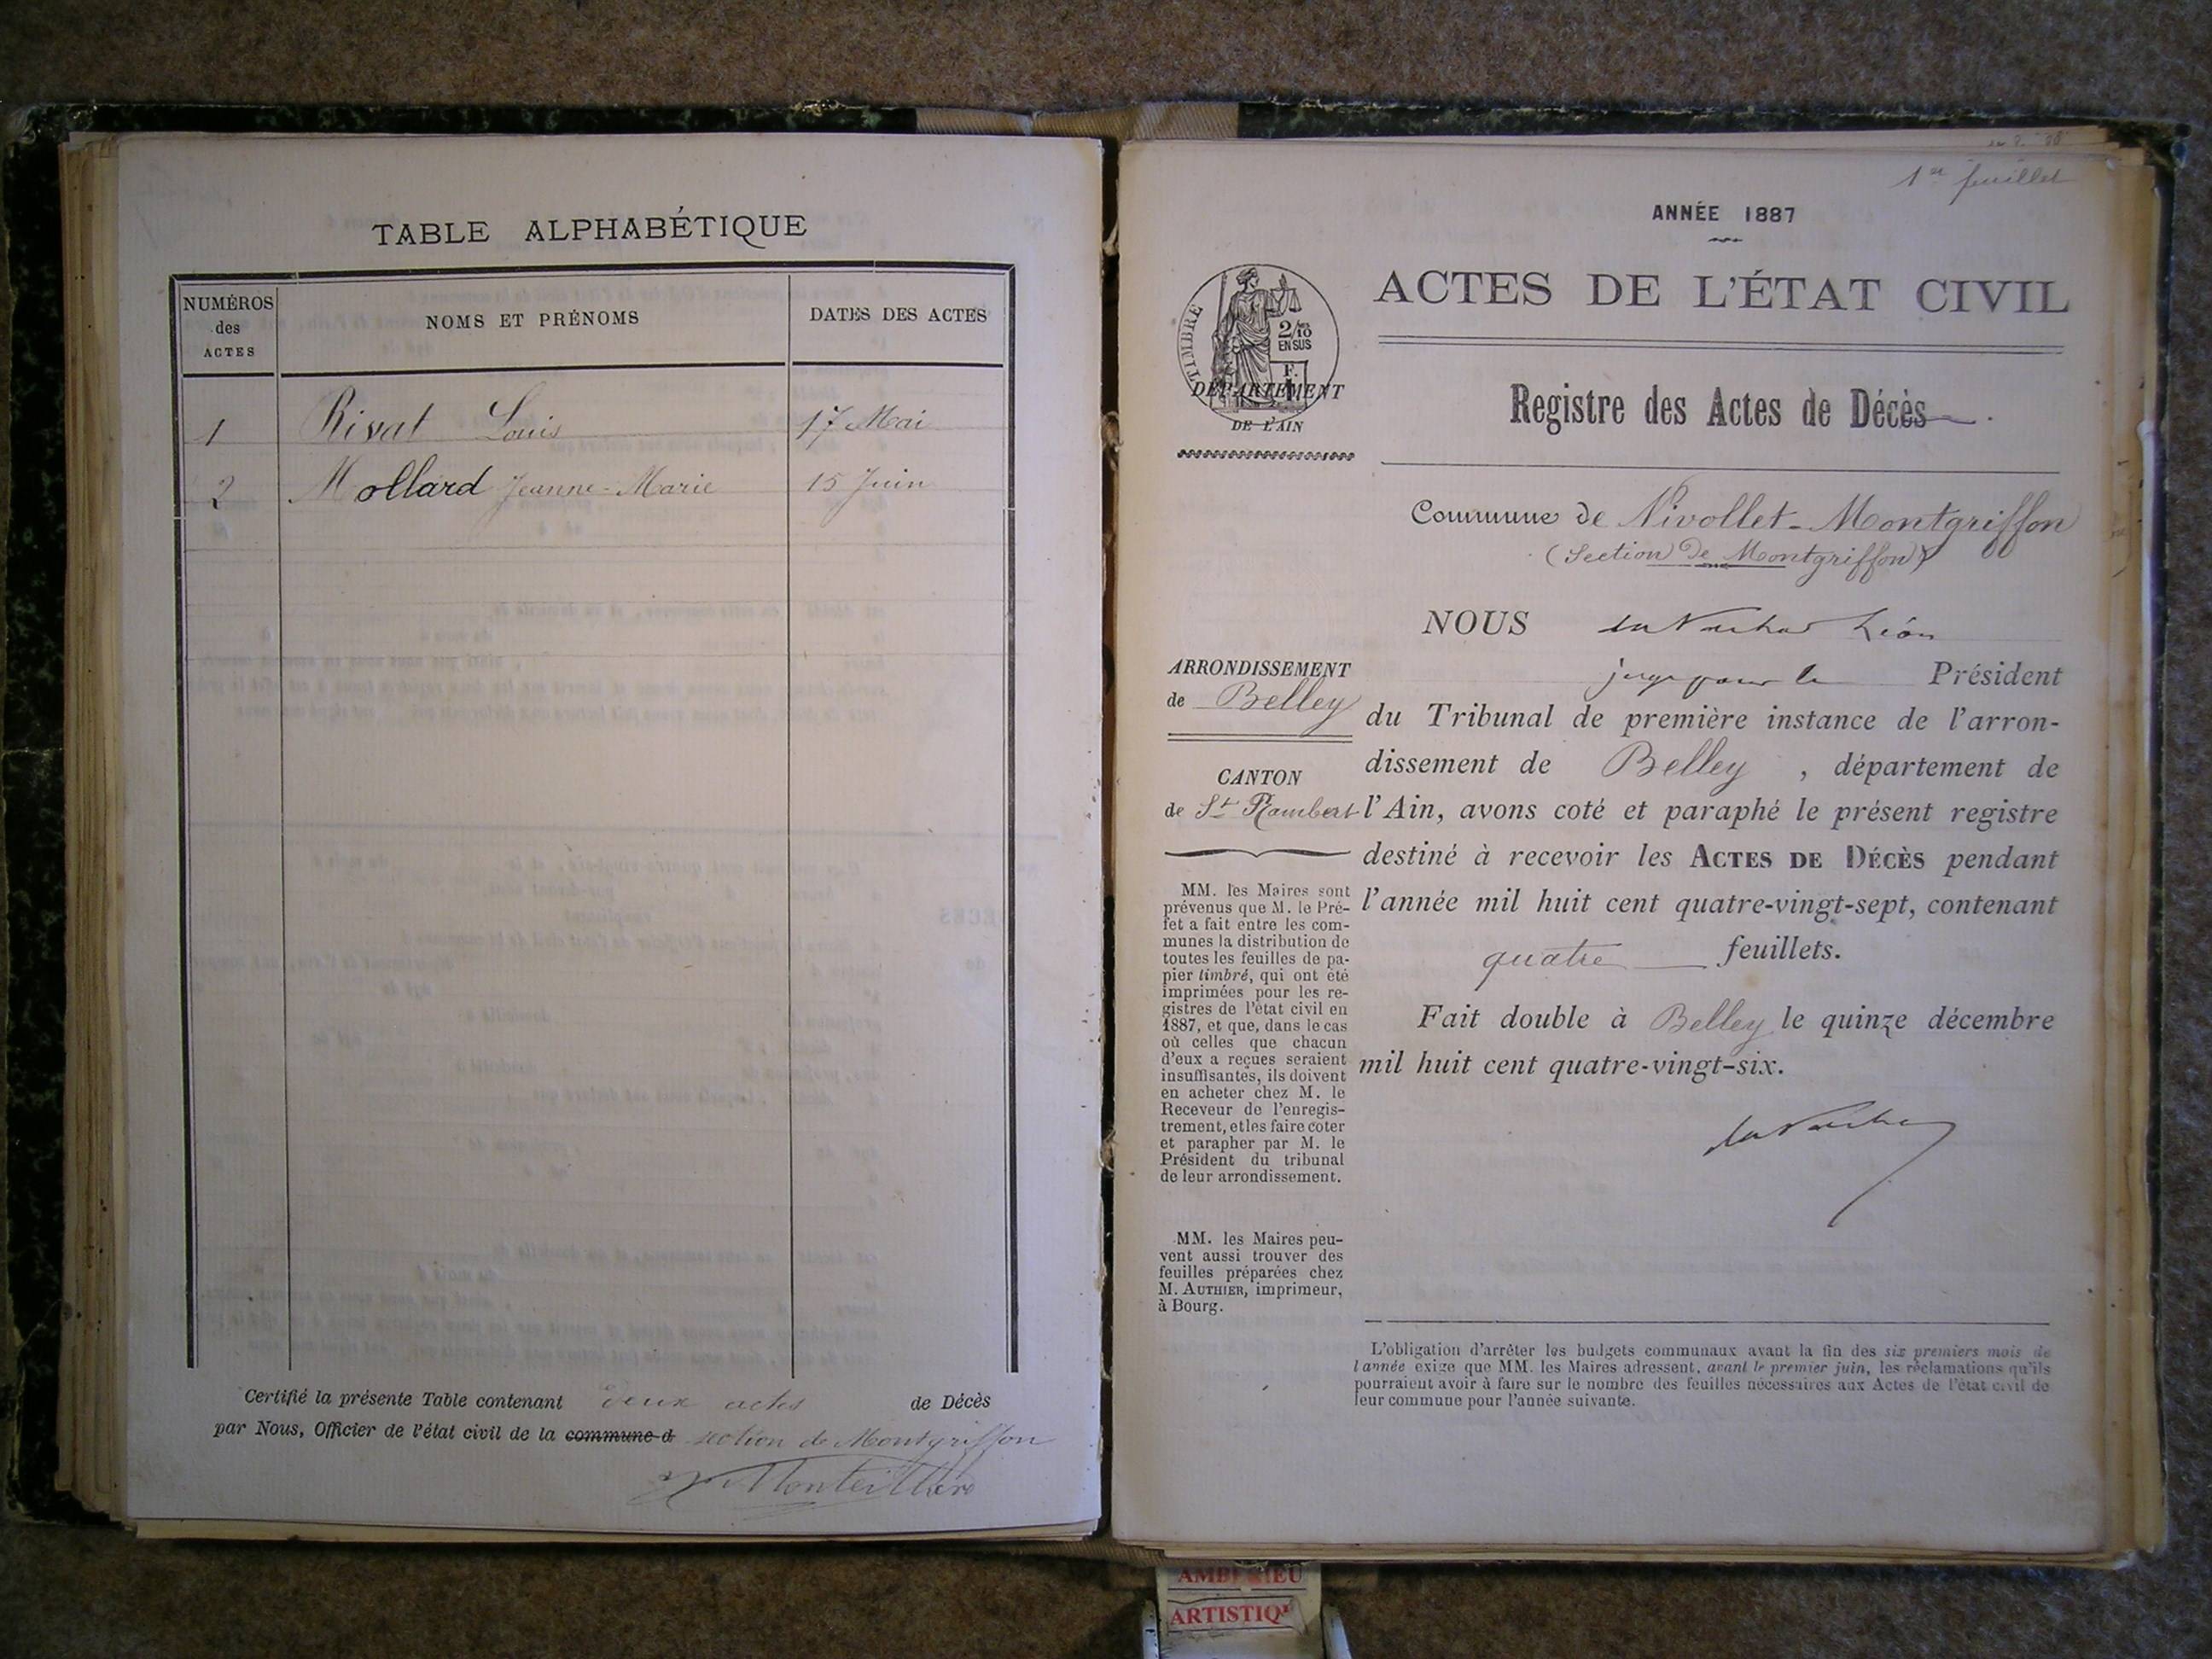 TABLE ALPHABÉTIQUE
NUMÉROS
des
ACTES
NOMS ET PRÉNOMS
DATES DES ACTES
1 Rivat Louis 17 Mai
2 Mollard Jeanne-Marie 15 Juin
Certifié la présente Table contenant deux actes de Décès
par Nous, Officier de l'état civil de la commune d section de Montgriffon
1er feuillet
ANNÉE 1887
ACTES DE L'ÉTAT CIVIL
TIMBRE
2/10
EN SUS
F.
1
DÉPARTEMENT
DE L'AIN
Registre des Actes de Décès
Commune de Nivollet-Montgriffon
(Section de Montgriffon)
NOUS Léon
juge pour le Président
ARRONDISSEMENT
de Belley
du Tribunal de première instance de l'arron-
dissement de Belley, département de
CANTON
de St Rambert
l'Ain, avons coté et paraphé le présent registre
destiné à recevoir les ACTES DE DÉCÈS pendant
l'année mil huit cent quatre-vingt-sept, contenant
quatre feuillets.
Fait double à Belley le quinze décembre
mil huit cent quatre-vingt-six.
MM. les Maires sont
prévenus que M. le Pré-
fet a fait entre les com-
munes la distribution de
toutes les feuilles de pa-
pier timbré, qui ont été
imprimées pour les re-
gistres de l'état civil en
1887, et que, dans le cas
où celles que chacun
d'eux a reçues seraient
insuffisantes, ils doivent
en acheter chez M. le
Receveur de l'enregis-
trement, et les faire coter
et parapher par M. le
Président du tribunal
de leur arrondissement.
MM. les Maires peu-
vent aussi trouver des
feuilles préparées chez
M. AUTHIER, imprimeur,
à Bourg.
L'obligation d'arrêter les budgets communaux avant la fin des six premiers mois de
l'année exige que MM. les Maires adressent, avant le premier juin, les réclamations qu'ils
pourraient avoir à faire sur le nombre des feuilles nécessaires aux Actes de l'état civil de
leur commune pour l'année suivante.
AMBERIEU
ARTISTIQU